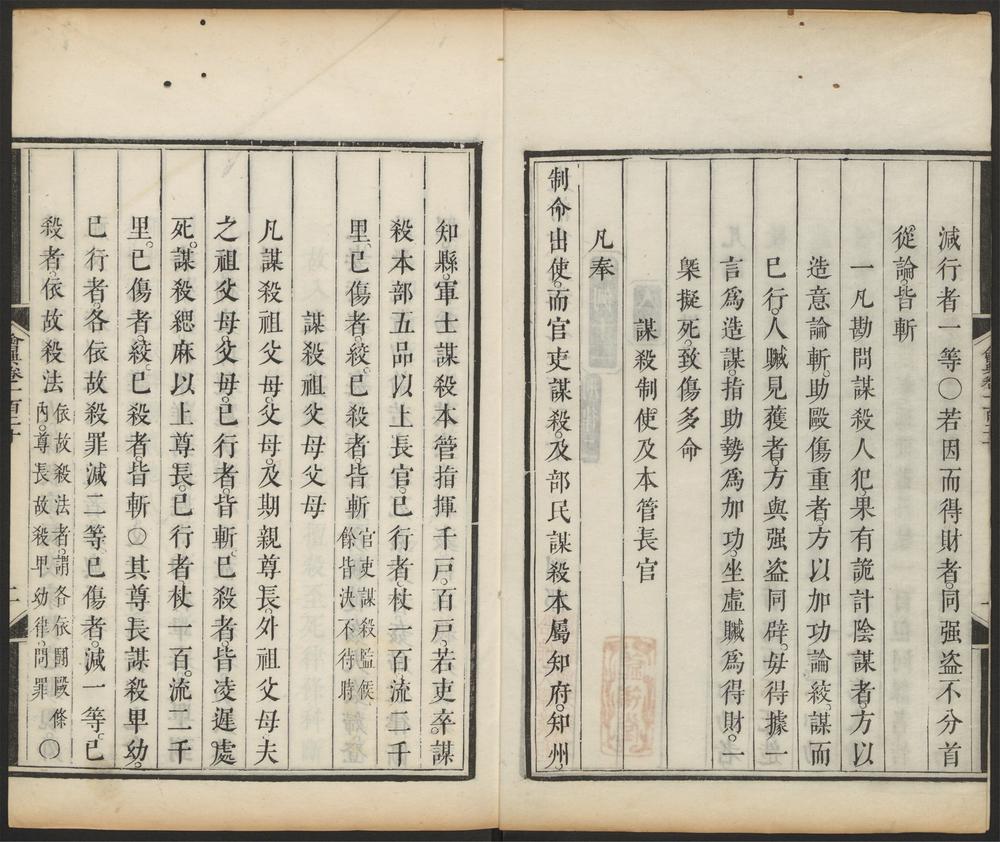 減行者一等○若因而得財者同强盜不分首
從論皆斬
一凡勘問謀殺人犯果有詭計陰謀者方以
造意論斬助毆傷重者方以加功論絞謀而
已行人贓見獲者方與强盜同辟毋得據一
言爲造謀指助勢爲加功坐虛贓爲得財一
槩擬死致傷多命
謀殺制使及本管長官
凡奉
制命出使而官吏謀殺及部民謀殺本屬知府知州
知縣軍士謀殺本管指揮千戸百戸若吏卒謀
殺本部五品以上長官已行者杖一百流二千
里已傷者絞已殺者皆斬官吏謀殺監候
餘皆決不待時
謀殺祖父母父母
凡謀殺祖父母父母及期親尊長外祖父母夫
之祖父母父母已行者皆斬已殺者皆凌遲處
死謀殺緦麻以上尊長已行者杖一百流二千
里已傷者絞已殺者皆斬○其尊長謀殺卑幼
已行者各依故殺罪減二等已傷者減一等已
殺者依故殺法依故殺法者謂各依鬪毆條
內尊長故殺卑幼律問罪○
會典卷一百二十
二